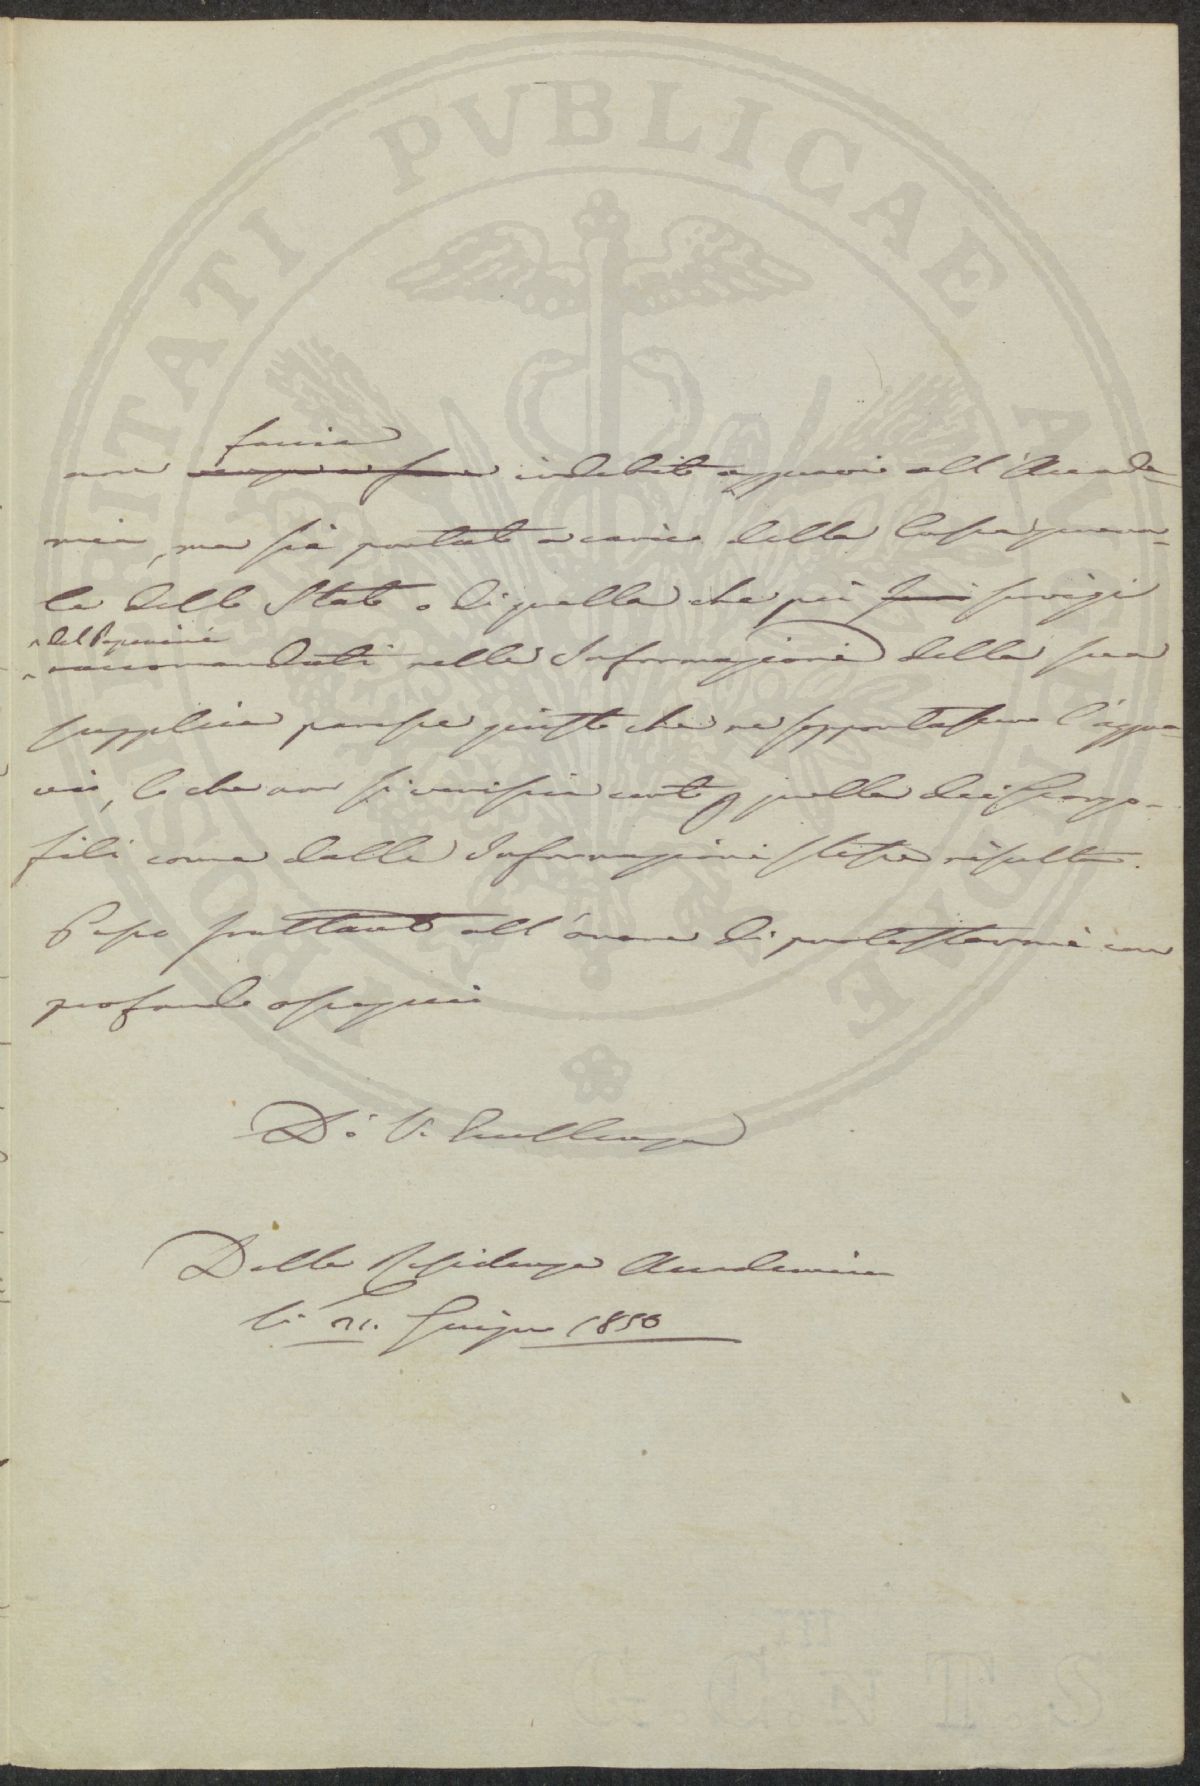 PROSPERITATI PVBLICAE AVGENDAE
faccia
non indebito aggravio all'Accade-
mia, ma sia portato a carico della Cassa genera-
le dello Stato o di quella che più servigi
del Peperini
raccomandati nelle Informazioni della sua
supplica paresse giusto che ne sopportasse l'aggra-
vio, lo che non si verifica certo p quella dei Georgo-
fili come dalle Informazioni stesse risulta.
Passo frattanto all'onore di protestarmi con
profondo ossequio
Di V. Eccellenza
Dalla Residenza Accademica
li 21. Giugno 1850